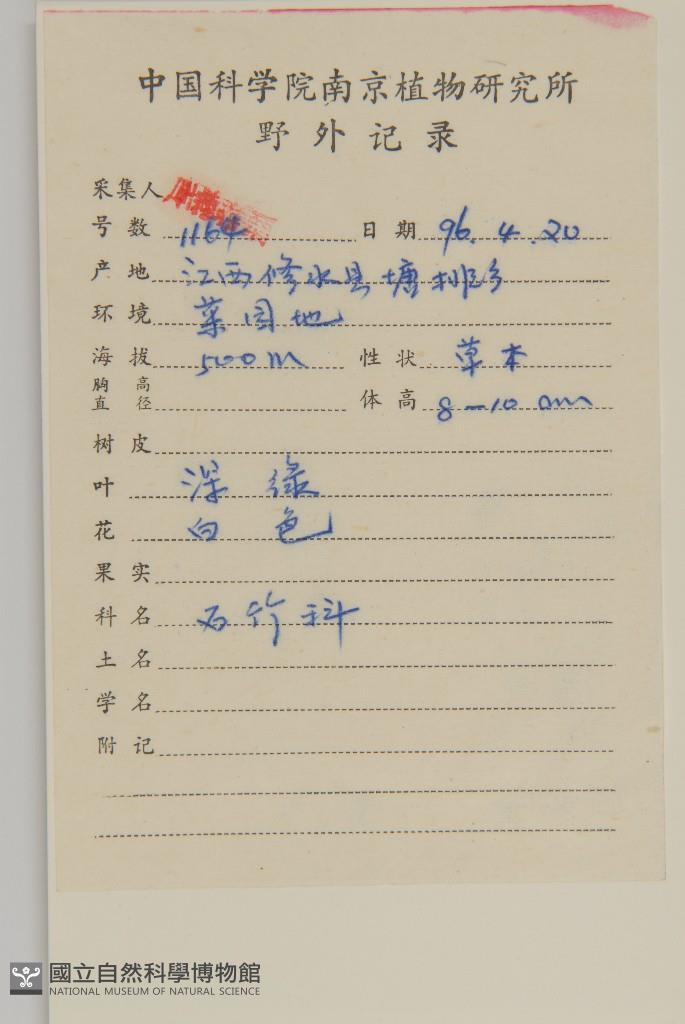 中国科学院南京植物研究所
野外记录
采集人
号数 1164 日期 96.4.20
产地 江西修水县塘排乡
环境 菜园地
海拔 500m 性状 草本
胸高直径 体高 8-10 cm
树皮
叶 深绿
花 白色
果实
科名 石竹科
土名
学名
附记
國立自然科學博物館
NATIONAL MUSEUM OF NATURAL SCIENCE